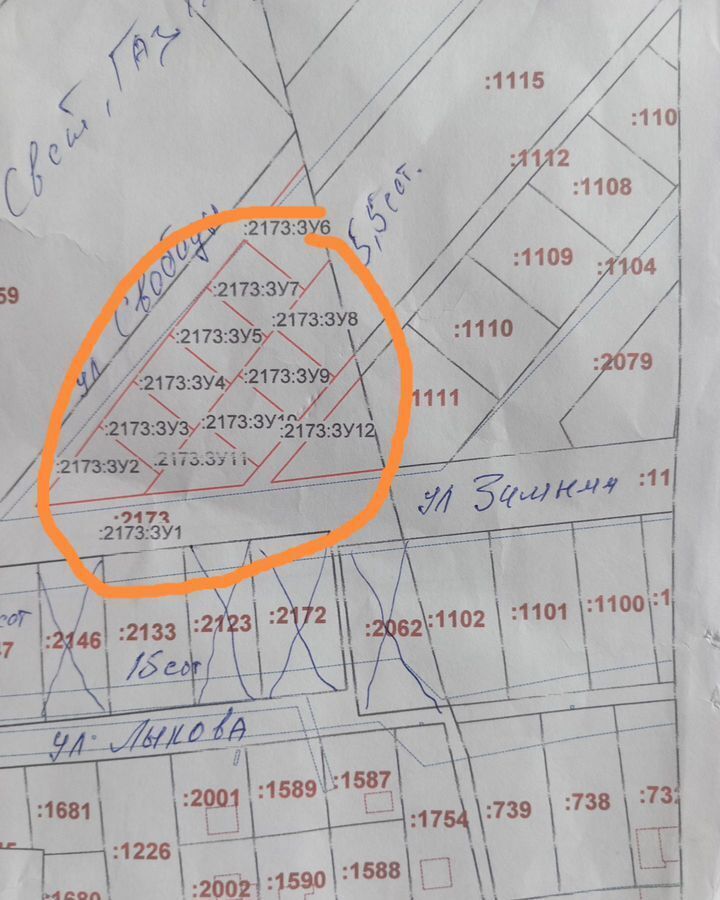 Свет, Газ
:1115
:110
:1112
:1108
5,5 сот.
:2173:ЗУ6
ул Свободы
:1109
:1104
59
:2173:ЗУ7
:2173:ЗУ8
:1110
:2173:ЗУ5
:2079
:2173:ЗУ4
:2173:ЗУ9
1111
:2173:ЗУ3
:2173:ЗУ10
:2173:ЗУ12
:2173:ЗУ2
:2173:ЗУ11
ул Зимняя
:11
:2173
:2173:ЗУ1
сот
:1100
:1
:1101
:2172
:1102
:2123
:2062
:2133
:2146
47
15 сот
ул. Лыкова
:1587
:1589
:2001
:732
:738
:739
:1681
:1754
:1226
:1588
:1590
:2002
:1680